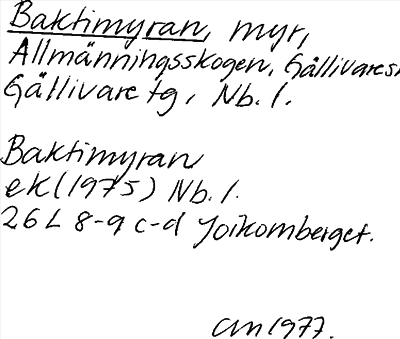 Baktimyran, myr,
Allmänningsskogen, Gällivares
Gällivare tg, Nb. l.
Baktimyran
ek (1975) Nb. l.
26 L 8-9 c-d Joikomberget.
CM 1977.